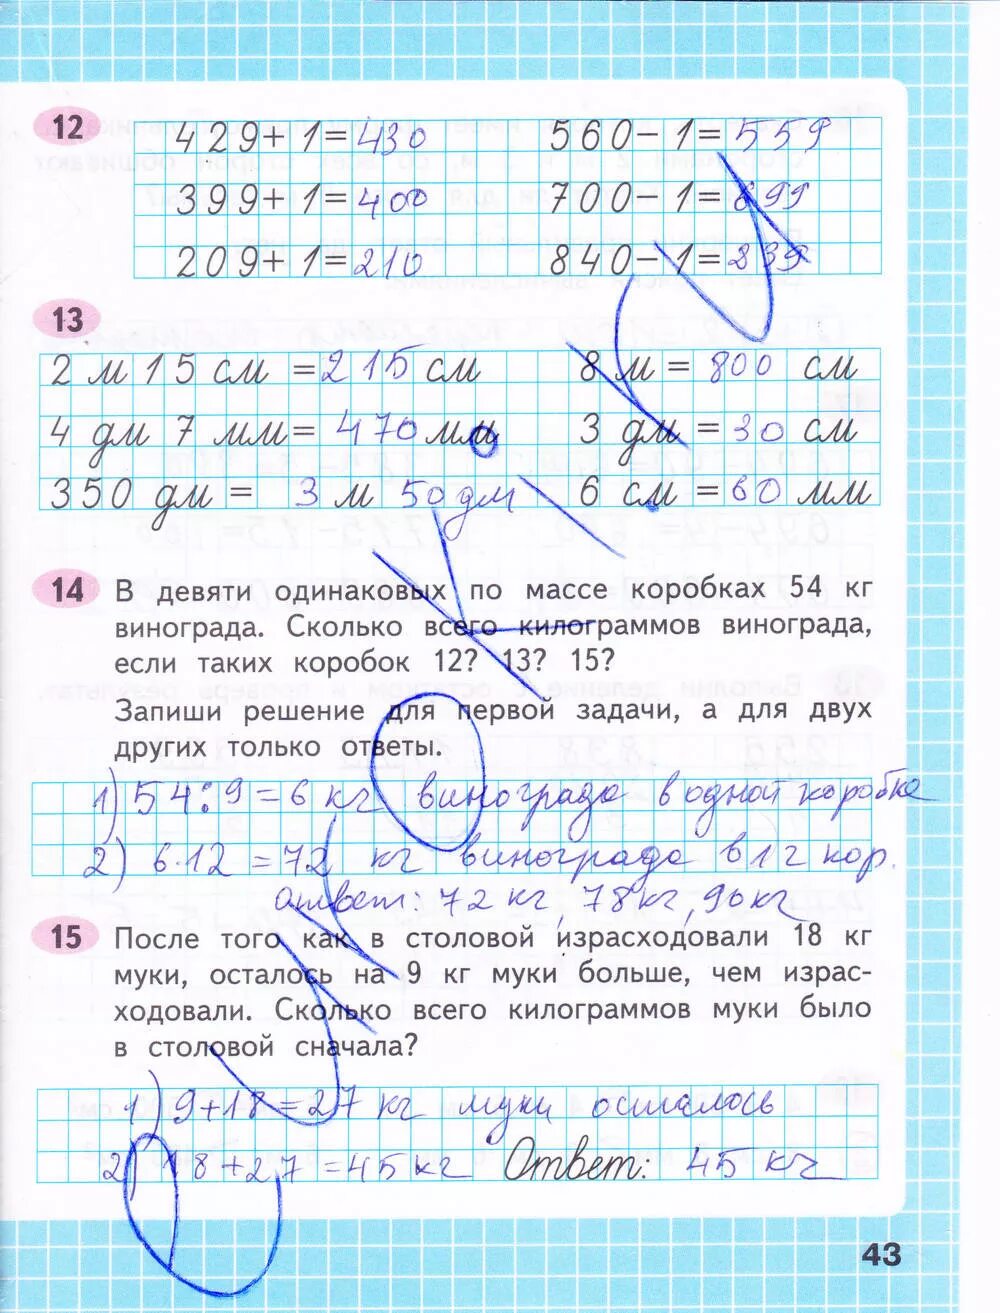 12
429+1=430 560-1=559
399+1=400 700-1=899
209+1=210 840-1=239
13
2 м 15 см =215 см 8 м = 800 см
4 дм 7 мм= 470 мм 3 дм = 30 см
350 дм = 3 м 50 дм 6 см = 60 мм
14 В девяти одинаковых по массе коробках 54 кг
винограда. Сколько всего килограммов винограда,
если таких коробок 12? 13? 15?
Запиши решение для первой задачи, а для двух
других только ответы.
1) 54:9=6 кг винограда в одной коробке
2) 6·12=72 кг винограда в 12 кор.
ответ: 72 кг, 78 кг, 90 кг
15 После того как в столовой израсходовали 18 кг
муки, осталось на 9 кг муки больше, чем израс-
ходовали. Сколько всего килограммов муки было
в столовой сначала?
1) 9+18=27 кг муки осталось
2) 18+27=45 кг Ответ: 45 кг
43